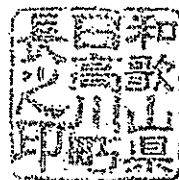 和歌山県
日高川町
長之印